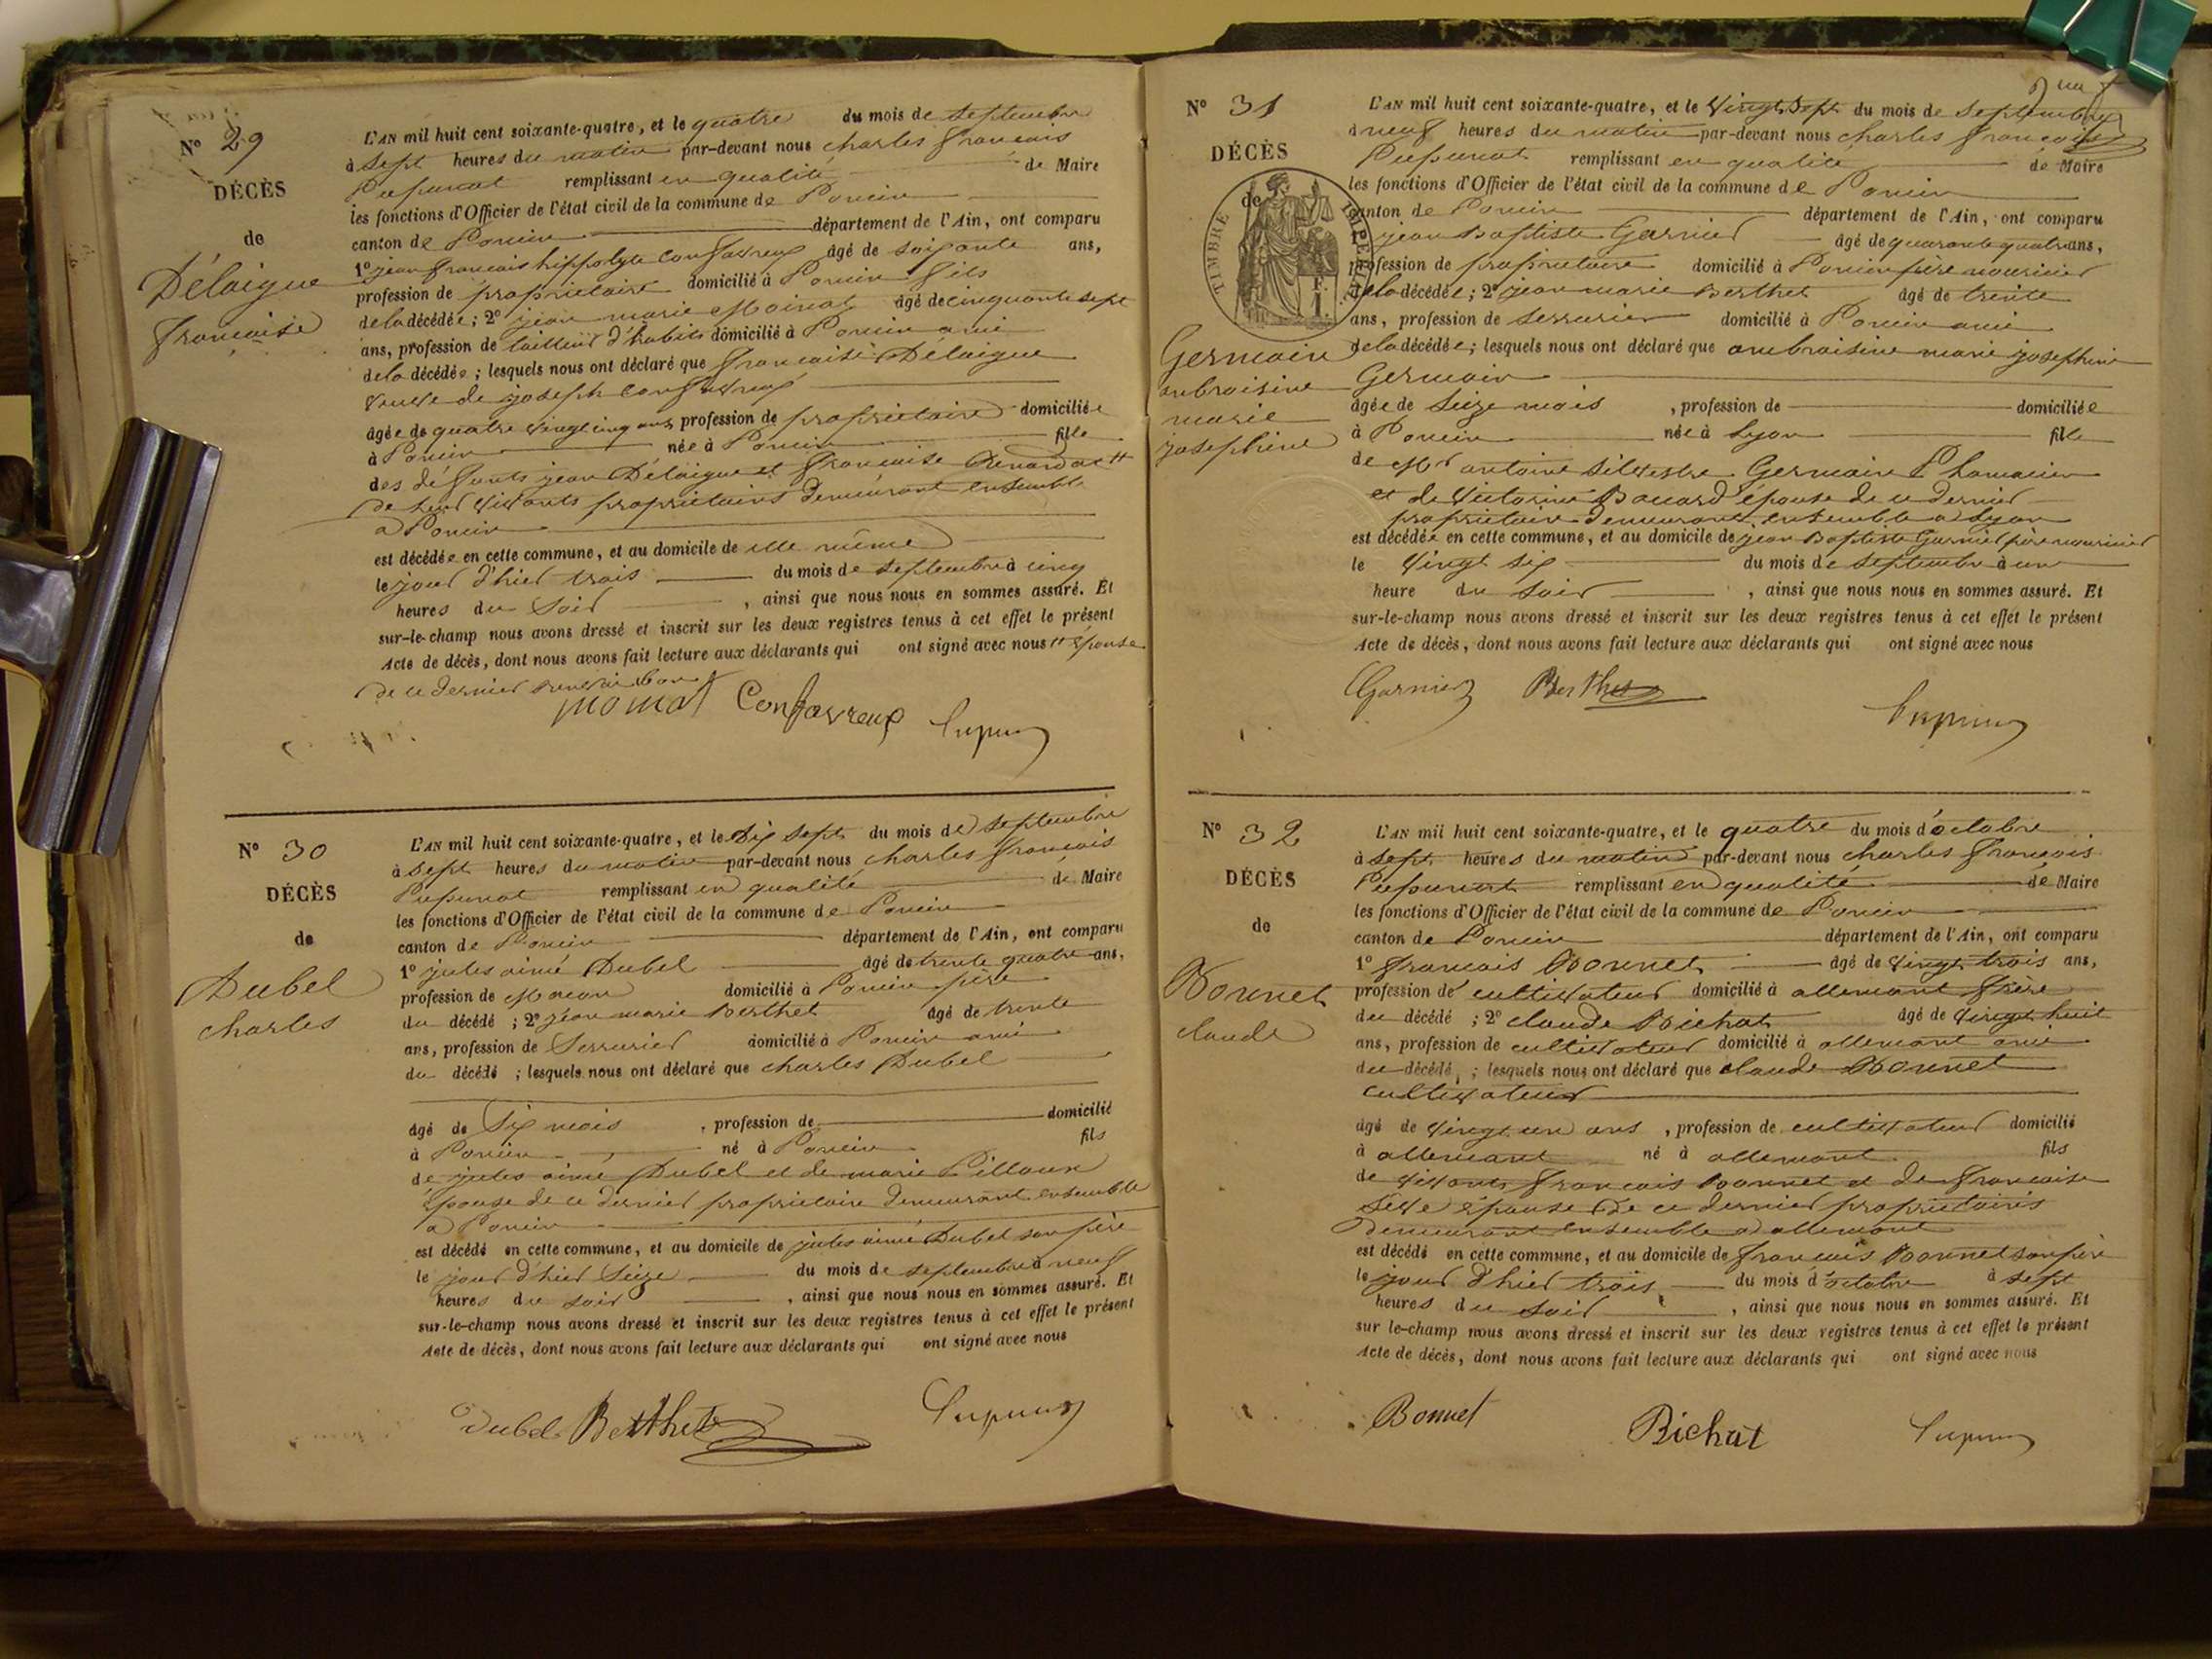 N° 29
DÉCÈS
de
Délaigue
françoise
L'AN mil huit cent soixante-quatre, et le quatre du mois de septembre
à sept heures du matin par-devant nous charles françois
Pupunat remplissant en qualité de Maire
les fonctions d'Officier de l'état civil de la commune de Poncin
canton de Poncin département de l'Ain, ont comparu
1° jean françois hippolyte Confavreux âgé de soixante ans,
profession de propriétaire domicilié à Poncin fils
de la décédée ; 2° jean marie Moinat âgé de cinquante sept
ans, profession de tailleur d'habits domicilié à Poncin ami
de la décédée ; lesquels nous ont déclaré que françoise Délaigue
veuve de joseph Confavreux
âgée de quatre vingt cinq ans, profession de propriétaire domiciliée
à Poncin née à Poncin fille
des défunts jean Délaigue et françoise
de leur vivants propriétaires demeurant ensemble
à Poncin
est décédée en cette commune, et au domicile de elle même
le jour d'hier trois du mois de septembre à cinq
heures du soir , ainsi que nous nous en sommes assuré. Et
sur-le-champ nous avons dressé et inscrit sur les deux registres tenus à cet effet le présent
Acte de décès, dont nous avons fait lecture aux déclarants qui ont signé avec nous # épouse
de ce dernier renvoi bon
Moinat Confavreux Pupunat
N° 30
DÉCÈS
de
Dubel
charles
L'AN mil huit cent soixante-quatre, et le dix sept du mois de septembre
à sept heures du matin par-devant nous charles françois
Pupunat remplissant en qualité de Maire
les fonctions d'Officier de l'état civil de la commune de Poncin
canton de Poncin département de l'Ain, ont comparu
1° jules aimé Dubel âgé de trente quatre ans,
profession de Maçon domicilié à Poncin père
du décédé ; 2° jean marie Berthet âgé de trente
ans, profession de Serrurier domicilié à Poncin ami
du décédé ; lesquels nous ont déclaré que charles Dubel
âgé de Six mois , profession de domicilié
à Poncin né à Poncin fils
de jules aimé Dubel et de marie Pilloux
épouse de ce dernier propriétaire demeurant ensemble
à Poncin
est décédé en cette commune, et au domicile de jules aimé Dubel son père
le jour d'hier Seize du mois de septembre à neuf
heures du soir , ainsi que nous nous en sommes assuré. Et
sur-le-champ nous avons dressé et inscrit sur les deux registres tenus à cet effet le présent
Acte de décès, dont nous avons fait lecture aux déclarants qui ont signé avec nous
Dubel Berthet Pupunat
N° 31
DÉCÈS
de
TIMBRE IMPÉRIAL
1 F.
Germain
ambroisine
marie
joséphine
L'AN mil huit cent soixante-quatre, et le Vingt Sept du mois de Septembre
à neuf heures du matin par-devant nous charles françois
Pupunat remplissant en qualité de Maire
les fonctions d'Officier de l'état civil de la commune de Poncin
canton de Poncin département de l'Ain, ont comparu
jean Baptiste Garnier âgé de quarante quatre ans,
profession de propriétaire domicilié à Poncin père nourricier
de la décédée ; 2° jean marie Berthet âgé de trente
ans, profession de Serrurier domicilié à Poncin ami
de la décédée ; lesquels nous ont déclaré que ambroisine marie joséphine
Germain
âgée de Seize mois , profession de domiciliée
à Poncin née à Lyon fille
de Mr antoine Silvestre Germain
et de Victorine Bouard épouse de ce dernier
propriétaire demeurant ensemble à Lyon
est décédée en cette commune, et au domicile de jean Baptiste Garnier père nourricier
le Vingt Six du mois de septembre à une
heure du soir , ainsi que nous nous en sommes assuré. Et
sur-le-champ nous avons dressé et inscrit sur les deux registres tenus à cet effet le présent
Acte de décès, dont nous avons fait lecture aux déclarants qui ont signé avec nous
Garnier Berthet Pupunat
N° 32
DÉCÈS
de
Bonnet
claude
L'AN mil huit cent soixante-quatre, et le quatre du mois d'octobre
à sept heures du matin par-devant nous charles françois
Pupunat remplissant en qualité de Maire
les fonctions d'Officier de l'état civil de la commune de Poncin
canton de Poncin département de l'Ain, ont comparu
1° françois Bonnet âgé de vingt trois ans,
profession de cultivateur domicilié à allement frère
du décédé ; 2° claude Bichat âgé de Vingt huit
ans, profession de cultivateur domicilié à allement ami
du décédé ; lesquels nous ont déclaré que claude Bonnet
cultivateur
âgé de vingt un ans , profession de cultivateur domicilié
à allement né à allement fils
de vivants françois Bonnet et de françoise
Sève épouse de ce dernier propriétaires
demeurant ensemble à allement
est décédé en cette commune, et au domicile de françois Bonnet son père
le jour d'hier trois du mois d'octobre à sept
heures du soir , ainsi que nous nous en sommes assuré. Et
sur le-champ nous avons dressé et inscrit sur les deux registres tenus à cet effet le présent
Acte de décès, dont nous avons fait lecture aux déclarants qui ont signé avec nous
Bonnet Bichat Pupunat